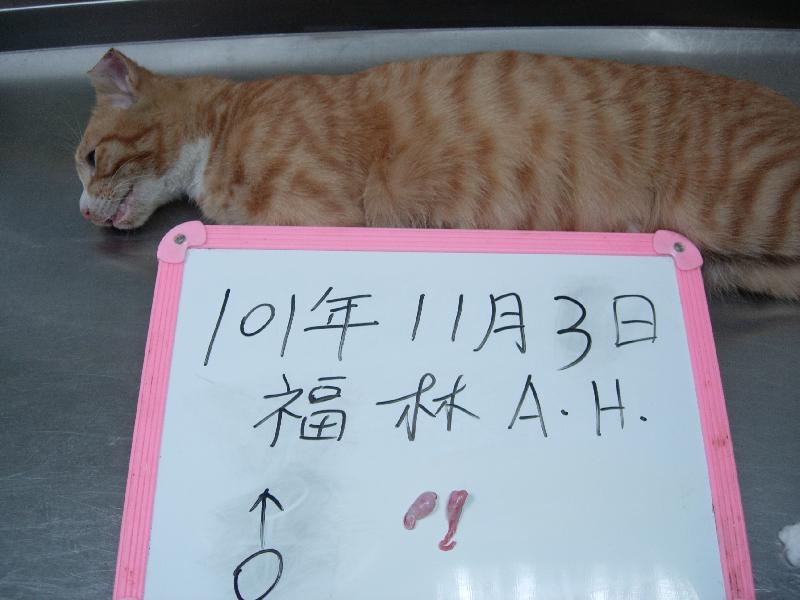 101年11月3日
福林A.H.